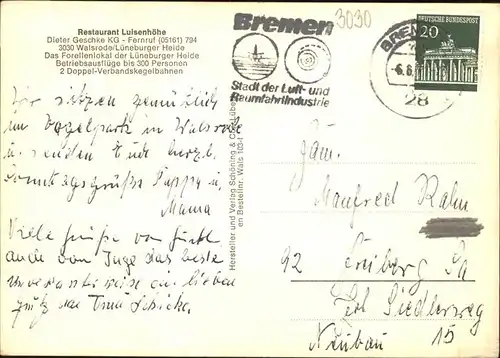 Restaurant Luisenhöhe
Dieter Geschke KG - Fernruf (05161) 794
3030 Walsrode/Lüneburger Heide
Das Forellenlokal der Lüneburger Heide
Betriebsausflüge bis 300 Personen
2 Doppel-Verbandskegelbahnen
3030
Bremen
Stadt der Luft- und
Raumfahrtindustrie
BREM
28
DEUTSCHE BUNDESPOST
20
Wir sitzen gemütlich
im Vogelpark in Walsrode
u. senden Euch herzl.
Sonntagsgrüße Pappa u.
Mama
Viele Grüße von
auch von das beste
lieben
Hersteller und Verlag Schöning & Co., Lübe
en Bestellnr. Wals 103/4
Fam.
Manfred Rahm
92 Freiberg Sa
Siedlerweg
Neubau 15